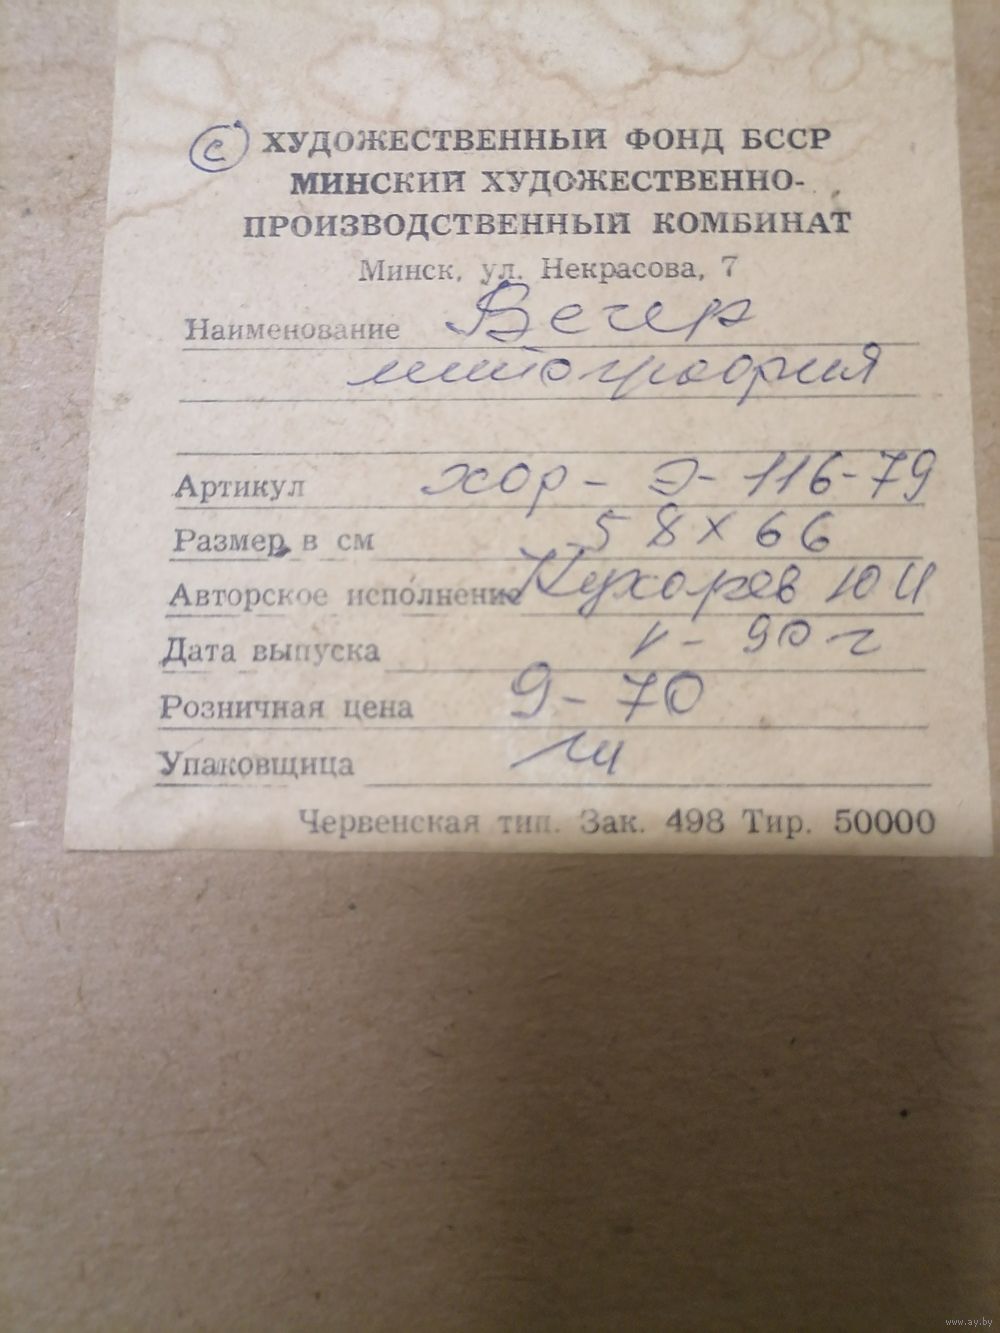 с ХУДОЖЕСТВЕННЫЙ ФОНД БССР
МИНСКИЙ ХУДОЖЕСТВЕННО-
ПРОИЗВОДСТВЕННЫЙ КОМБИНАТ
Минск, ул. Некрасова, 7
Наименование Вечер
литография
Артикул хор - Э - 116-79
Размер в см 58 х 66
Авторское исполнение Кухарев Ю И
Дата выпуска - 90 г
Розничная цена 9-70
Упаковщица
Червенская тип. Зак. 498 Тир. 50000
www.ay.by